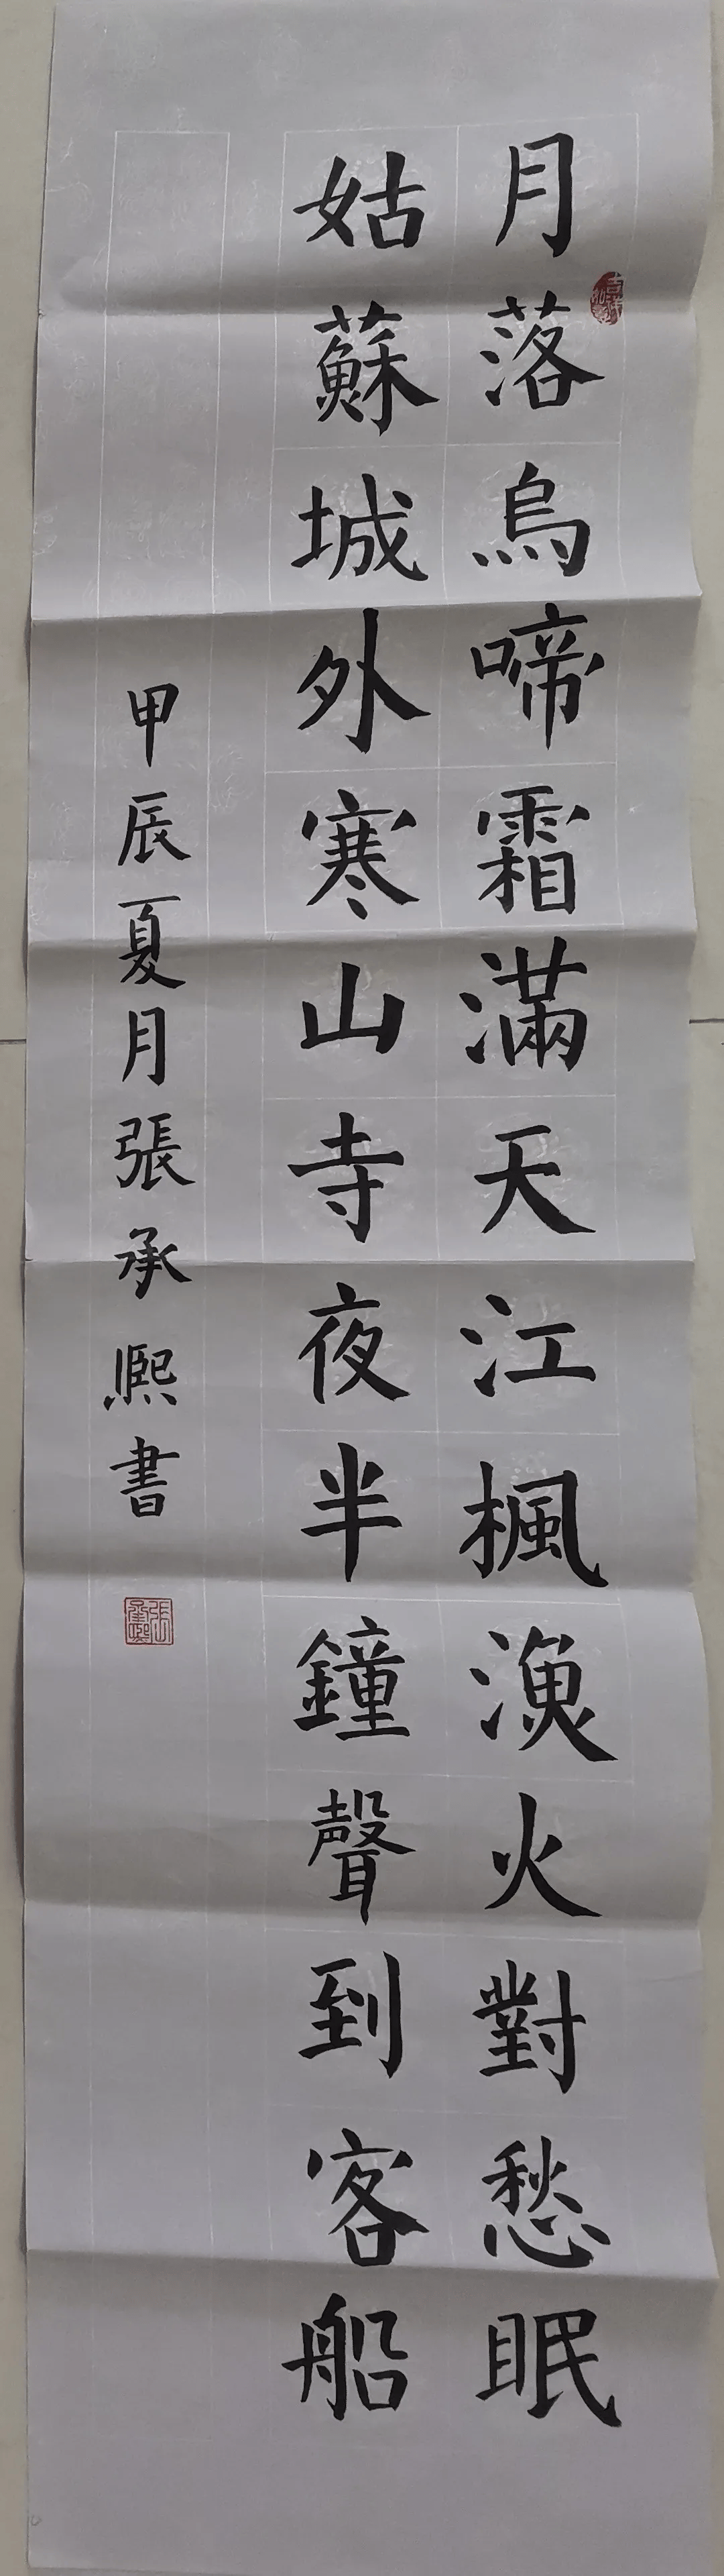 月落烏啼霜滿天江楓漁火對愁眠
姑蘇城外寒山寺夜半鐘聲到客船
甲辰夏月張承熙書
張承熙